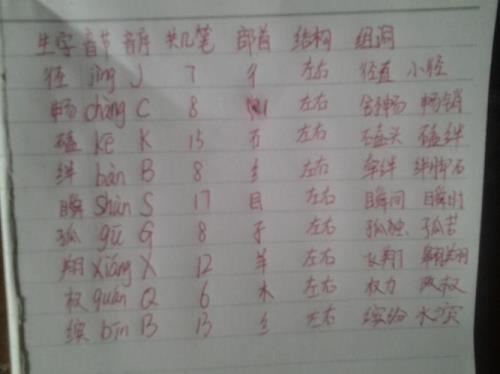 生字 音节 音序 共几笔 部首 结构 组词
径 jìng J 7 彳 左右 径直 小径
畅 chàng C 8 左右 舒畅 畅销
磕 kē K 15 石 左右 磕头 磕绊
绊 bàn B 8 纟 左右 牵绊 绊脚石
瞬 Shùn S 17 目 左右 瞬间 瞬时
孤 gū G 8 子 左右 孤独 孤苦
翔 xiáng X 12 羊 左右 飞翔 翱翔
权 quán Q 6 木 左右 权力 政权
缤 bīn B 13 纟 左右 缤纷